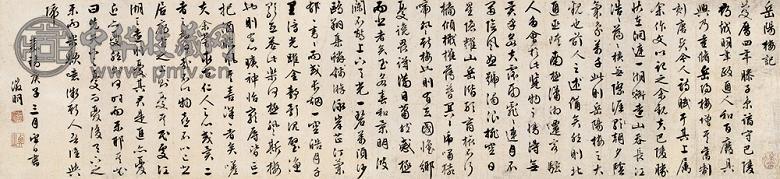 岳陽樓記
慶曆四年滕子京謫守巴陵
郡越明年政通人和百廢具
興乃重修岳陽樓增其舊制
刻唐賢今人詩賦于其上屬
余作文以記之余觀夫巴陵勝
狀在洞庭一湖銜遠山吞長江
浩浩湯湯橫無際涯朝暉夕陰
氣象萬千此則岳陽樓之大
觀也前人之述備矣然則北
通巫峽南極瀟湘遷客騷
人多會於此覽物之情得無
異乎若夫霪雨霏霏連月不
開陰風怒號濁浪排空日
星隱耀山岳潛形商旅不行
檣傾楫摧薄暮冥冥虎嘯猿
啼登斯樓也則有去國懷鄉
憂讒畏譏滿目蕭然感極
而悲者矣至若春和景明波
瀾不驚上下天光一碧萬頃沙
鷗翔集錦鱗游泳岸芷汀蘭
郁郁青青而或長煙一空皓月千
里浮光躍金靜影沉璧漁
歌互答此樂何極登斯樓
也則有心曠神怡寵辱皆忘
把酒臨風其喜洋洋者矣嗟
夫余嘗求古仁人之心或異二
者之為何哉不以物喜不以己悲
居廟堂之高則憂其民處江
湖之遠則憂其君是進亦憂
退亦憂然則何時而樂耶其必
曰先天下之憂而憂後天下之
樂而樂歟噫微斯人吾誰與
歸
嘉靖庚子三月望日書
徵明